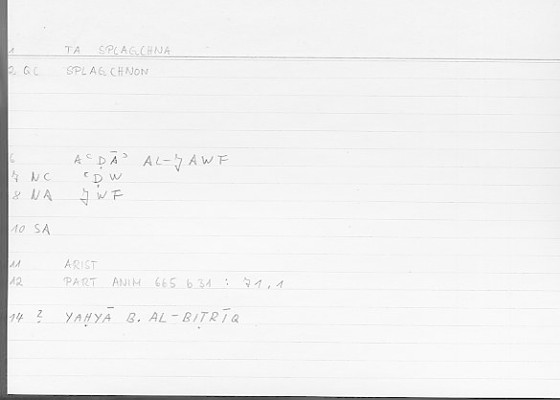 1 TA SPLAGCHNA
2 QC SPLAGCHNON
6 AʿḌĀʾ AL-ǦAWF
7 NC ʿḌW
8 NA ǦWF
10 SA
11 ARIST
12 PART ANIM 665 b 31 : 71,1
14 ? YAḤYĀ B. AL-BIṬRĪQ